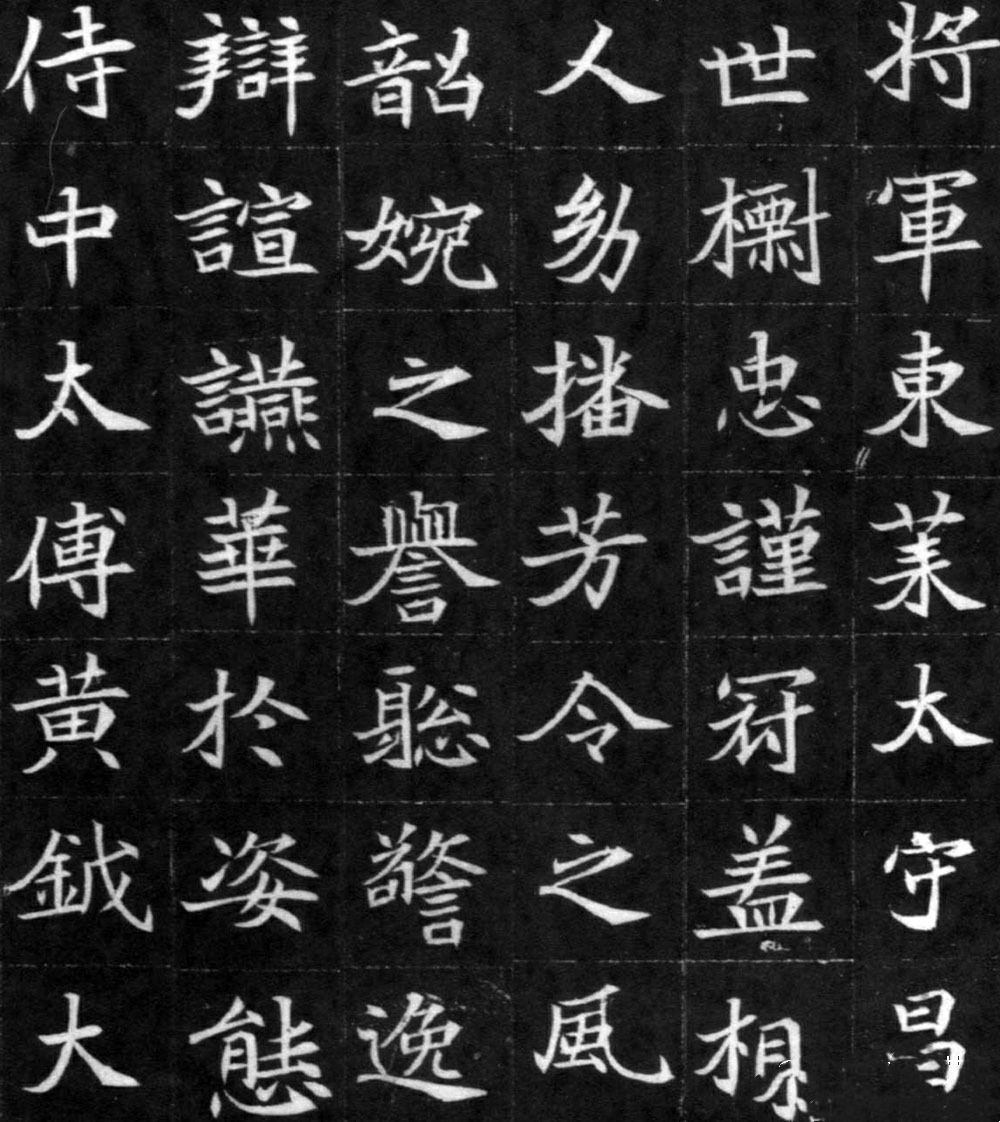 将軍東萊太守昌
世樹忠謹冠盖相
人幼播芳令之風
韶婉之譽聡警逸
辯諠讌華於姿態
侍中太傅黄鉞大